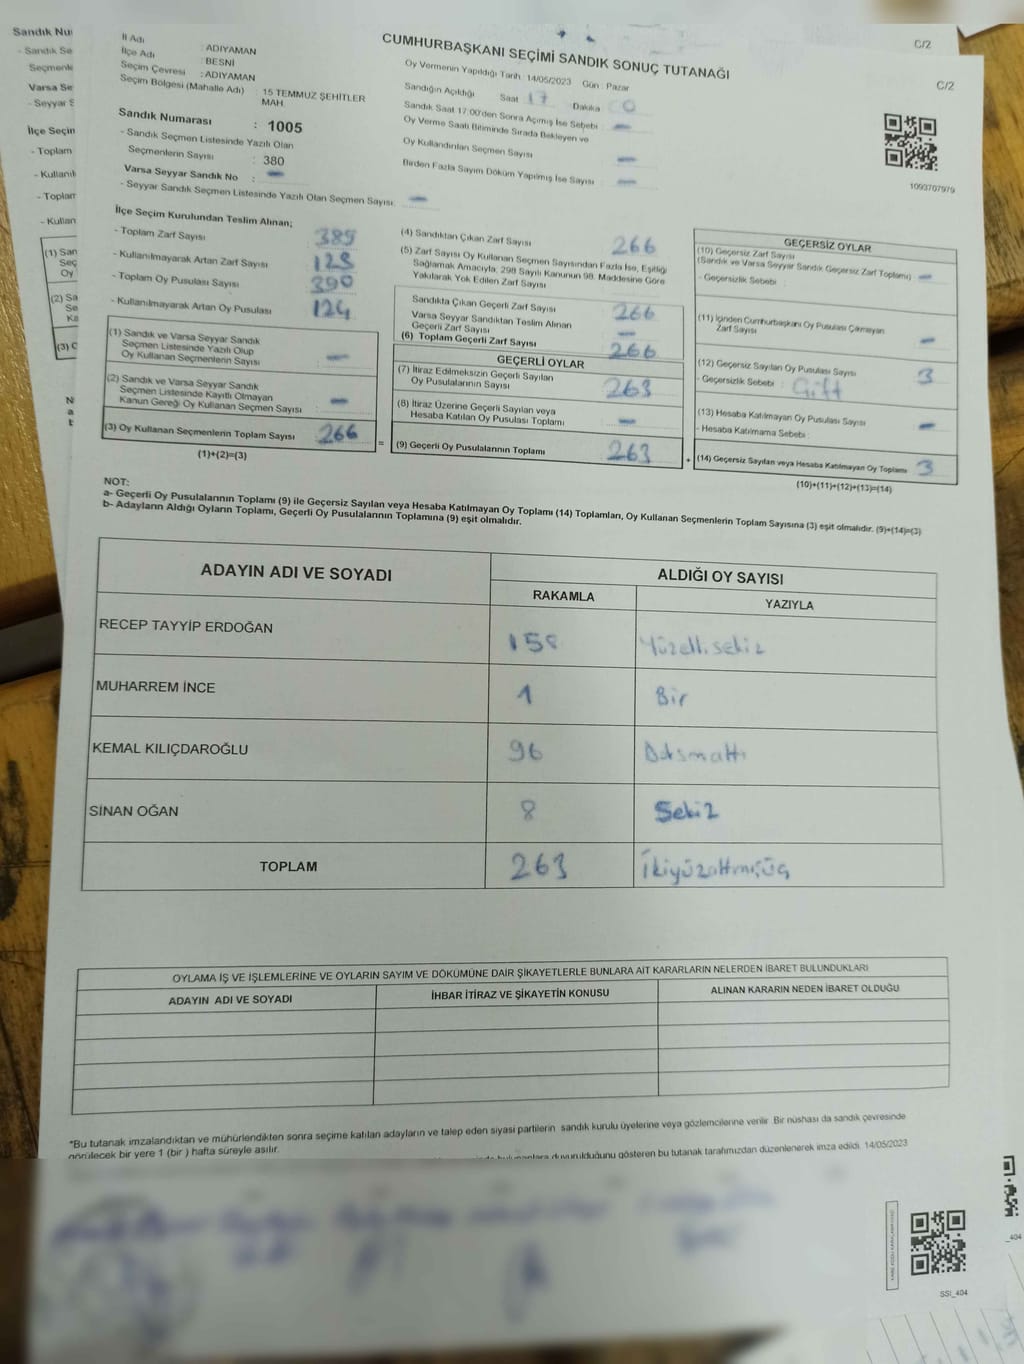 CUMHURBAŞKANI SEÇİMİ SANDIK SONUÇ TUTANAĞI
C/2
C/2
İl Adı : ADIYAMAN
İlçe Adı : BESNİ
Seçim Çevresi : ADIYAMAN
Seçim Bölgesi (Mahalle Adı) : 15 TEMMUZ ŞEHİTLER MAH.
Sandık Numarası : 1005
- Sandık Seçmen Listesinde Yazılı Olan
Seçmenlerin Sayısı : 380
Varsa Seyyar Sandık No : -
- Seyyar Sandık Seçmen Listesinde Yazılı Olan Seçmen Sayısı: -
Oy Vermenin Yapıldığı Tarih :14/05/2023 Gün : Pazar
Sandığın Açıldığı Saat 17 Dakika 0
Sandık Saat 17:00'den Sonra Açımış İse Sebebi : -
Oy Verme Saati Bitiminde Sırada Bekleyen ve
Oy Kullandırılan Seçmen Sayısı -
Birden Fazla Sayım Döküm Yapılmış İse Sayısı -
1093707979
İlçe Seçim Kurulundan Teslim Alınan;
- Toplam Zarf Sayısı : 389
- Kullanılmayarak Artan Zarf Sayısı : 123
- Toplam Oy Pusulası Sayısı : 390
- Kullanılmayarak Artan Oy Pusulası : 124
(1) Sandık ve Varsa Seyyar Sandık
Seçmen Listesinde Yazılı Olup
Oy Kullanan Seçmenlerin Sayısı : -
(2) Sandık ve Varsa Seyyar Sandık
Seçmen Listesinde Kayıtlı Olmayan
Kanun Gereği Oy Kullanan Seçmen Sayısı : -
(3) Oy Kullanan Seçmenlerin Toplam Sayısı : 266
(1)+(2)=(3)
=
(4) Sandıktan Çıkan Zarf Sayısı 266
(5) Zarf Sayısı Oy Kullanan Seçmen Sayısından Fazla İse, Eşitliği
Sağlamak Amacıyla, 298 Sayılı Kanunun 98. Maddesine Göre
Yakılarak Yok Edilen Zarf Sayısı
Sandıkta Çıkan Geçerli Zarf Sayısı 266
Varsa Seyyar Sandıktan Teslim Alınan
Geçerli Zarf Sayısı -
(6) Toplam Geçerli Zarf Sayısı 266
GEÇERLİ OYLAR
(7) İtiraz Edilmeksizin Geçerli Sayılan
Oy Pusulalarının Sayısı 263
(8) İtiraz Üzerine Geçerli Sayılan veya
Hesaba Katılan Oy Pusulası Toplamı -
(9) Geçerli Oy Pusulalarının Toplamı 263
+
GEÇERSİZ OYLAR
(10) Geçersiz Zarf Sayısı
(Sandık ve Varsa Seyyar Sandık Geçersiz Zarf Toplamı) -
- Geçersizlik Sebebi :
(11) İçinden Cumhurbaşkanı Oy Pusulası Çıkmayan
Zarf Sayısı -
(12) Geçersiz Sayılan Oy Pusulası Sayısı 3
- Geçersizlik Sebebi : Çift
(13) Hesaba Katılmayan Oy Pusulası Sayısı -
- Hesaba Katılmama Sebebi :
(14) Geçersiz Sayılan veya Hesaba Katılmayan Oy Toplamı 3
(10)+(11)+(12)+(13)=(14)
NOT:
a- Geçerli Oy Pusulalarının Toplamı (9) ile Geçersiz Sayılan veya Hesaba Katılmayan Oy Toplamı (14) Toplamları, Oy Kullanan Seçmenlerin Toplam Sayısına (3) eşit olmalıdır. (9)+(14)=(3)
b- Adayların Aldığı Oyların Toplamı, Geçerli Oy Pusulalarının Toplamına (9) eşit olmalıdır.
ADAYIN ADI VE SOYADI ALDIĞI OY SAYISI
RAKAMLA YAZIYLA
RECEP TAYYİP ERDOĞAN 158 Yüzellisekiz
MUHARREM İNCE 1 Bir
KEMAL KILIÇDAROĞLU 96 Doksanaltı
SİNAN OĞAN 8 Sekiz
TOPLAM 263 İkiyüzaltmışüç
OYLAMA İŞ VE İŞLEMLERİNE VE OYLARIN SAYIM VE DÖKÜMÜNE DAİR ŞİKAYETLERLE BUNLARA AİT KARARLARIN NELERDEN İBARET BULUNDUKLARI
ADAYIN ADI VE SOYADI İHBAR İTİRAZ VE ŞİKAYETİN KONUSU ALINAN KARARIN NEDEN İBARET OLDUĞU
*Bu tutanak imzalandıktan ve mühürlendikten sonra seçime katılan adayların ve talep eden siyasi partilerin sandık kurulu üyelerine veya gözlemcilerine verilir. Bir nüshası da sandık çevresinde
görülecek bir yere 1 (bir ) hafta süreyle asılır.
duyurulduğunu gösteren bu tutanak tarafımızdan düzenlenerek imza edildi. 14/05/2023
SSI_404
_404